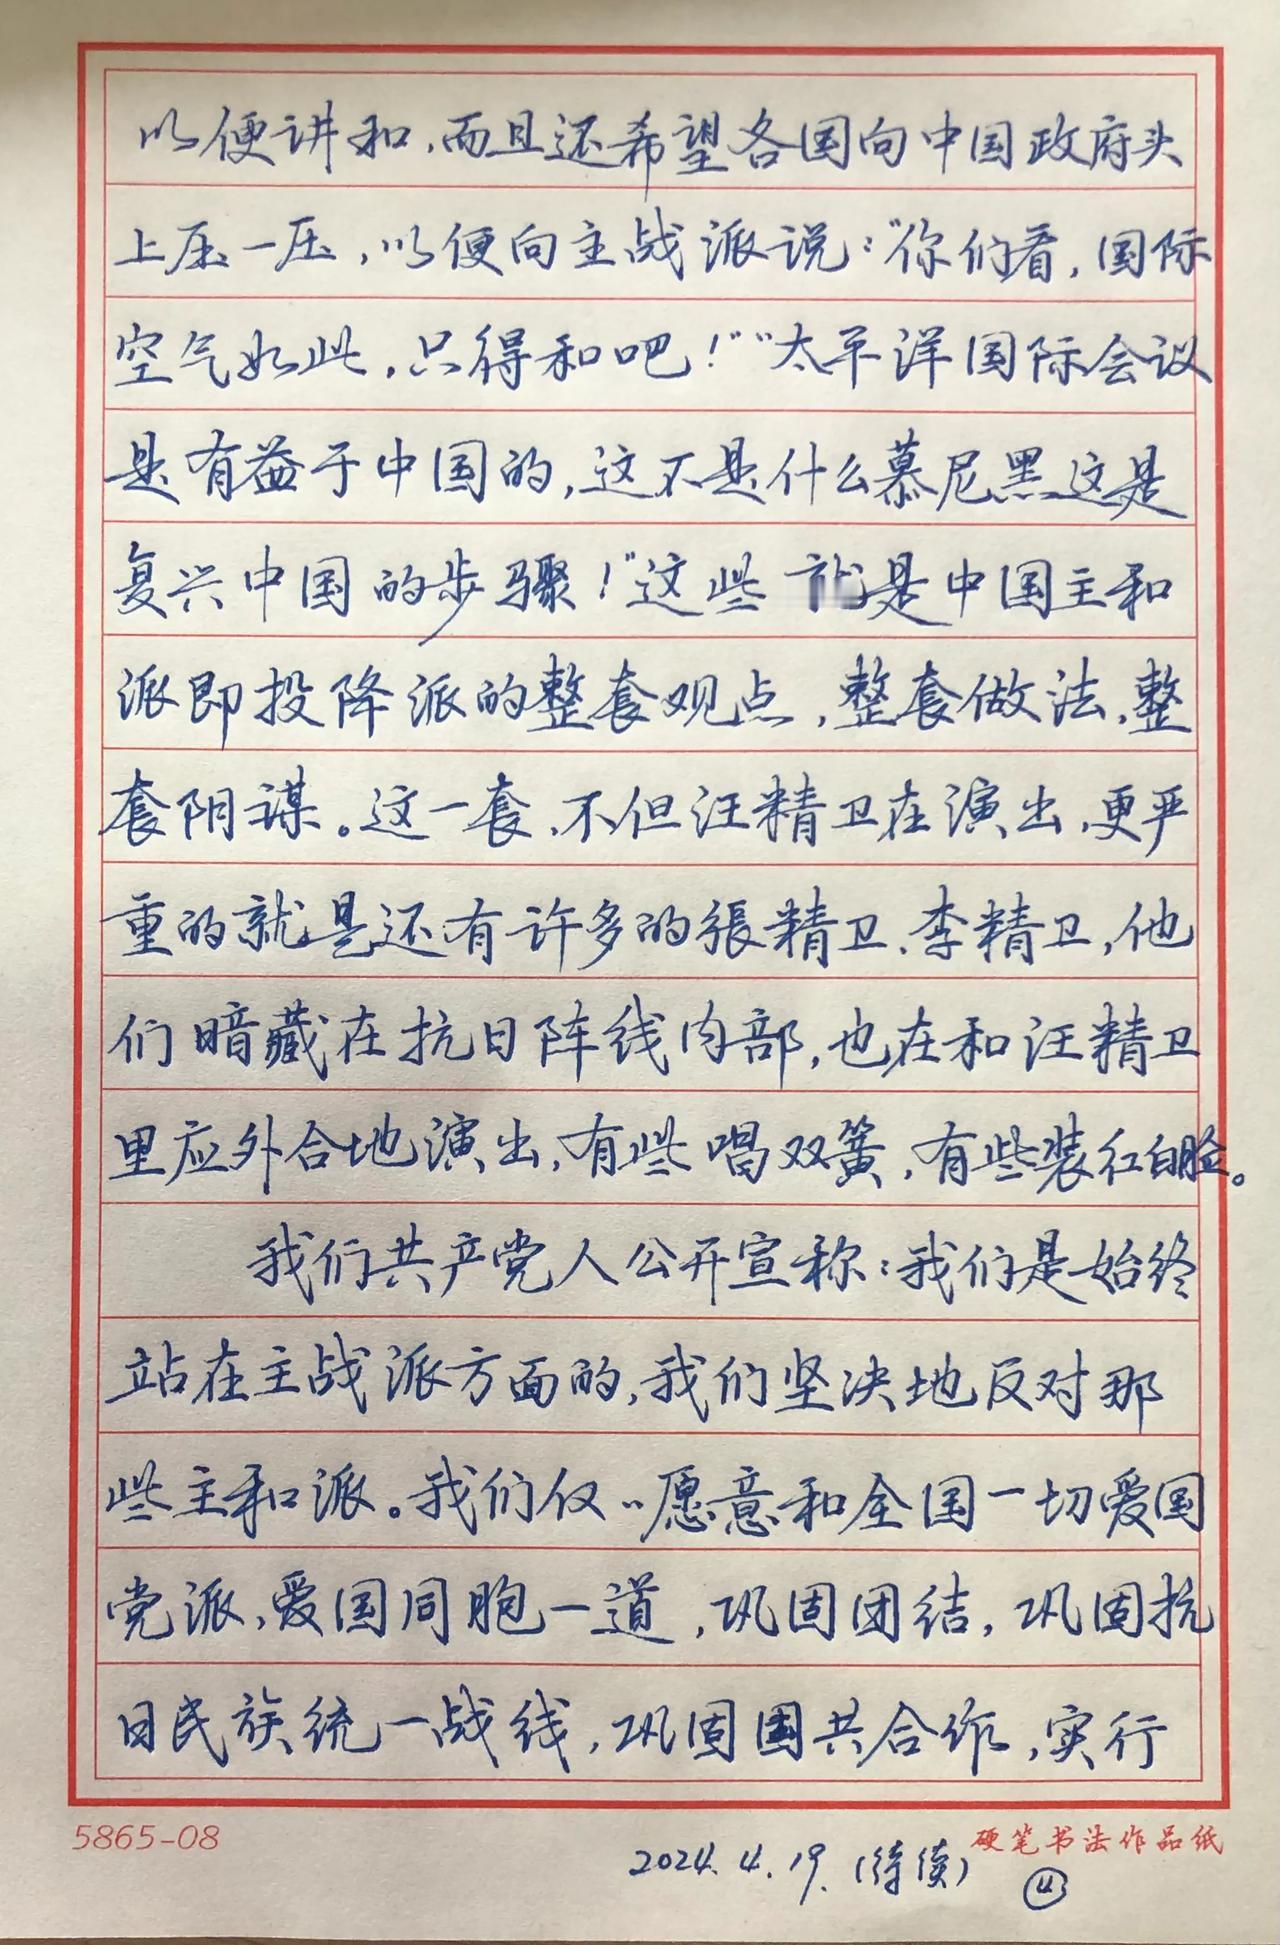 以便讲和，而且还希望各国向中国政府头
上压一压，以便向主战派说："你们看，国际
空气如此，只得和吧！""太平洋国际会议
是有益于中国的，这不是什么慕尼黑这是
复兴中国的步骤！"这些就是中国主和
派即投降派的整套观点，整套做法，整
套阴谋。这一套，不但汪精卫在演出，更严
重的就是还有许多的張精卫、李精卫，他
们暗藏在抗日阵线内部，也在和汪精卫
里应外合地演出，有些唱双簧，有些装红白脸。
我们共产党人公开宣称：我们是始终
站在主战派方面的，我们坚决地反对那
些主和派。我们仅〃愿意和全国一切爱国
党派、爱国同胞一道，巩固团结，巩固抗
日民族统一战线，巩固国共合作，实行
5865-08
硬笔书法作品纸
2024.4.19.（待续）④